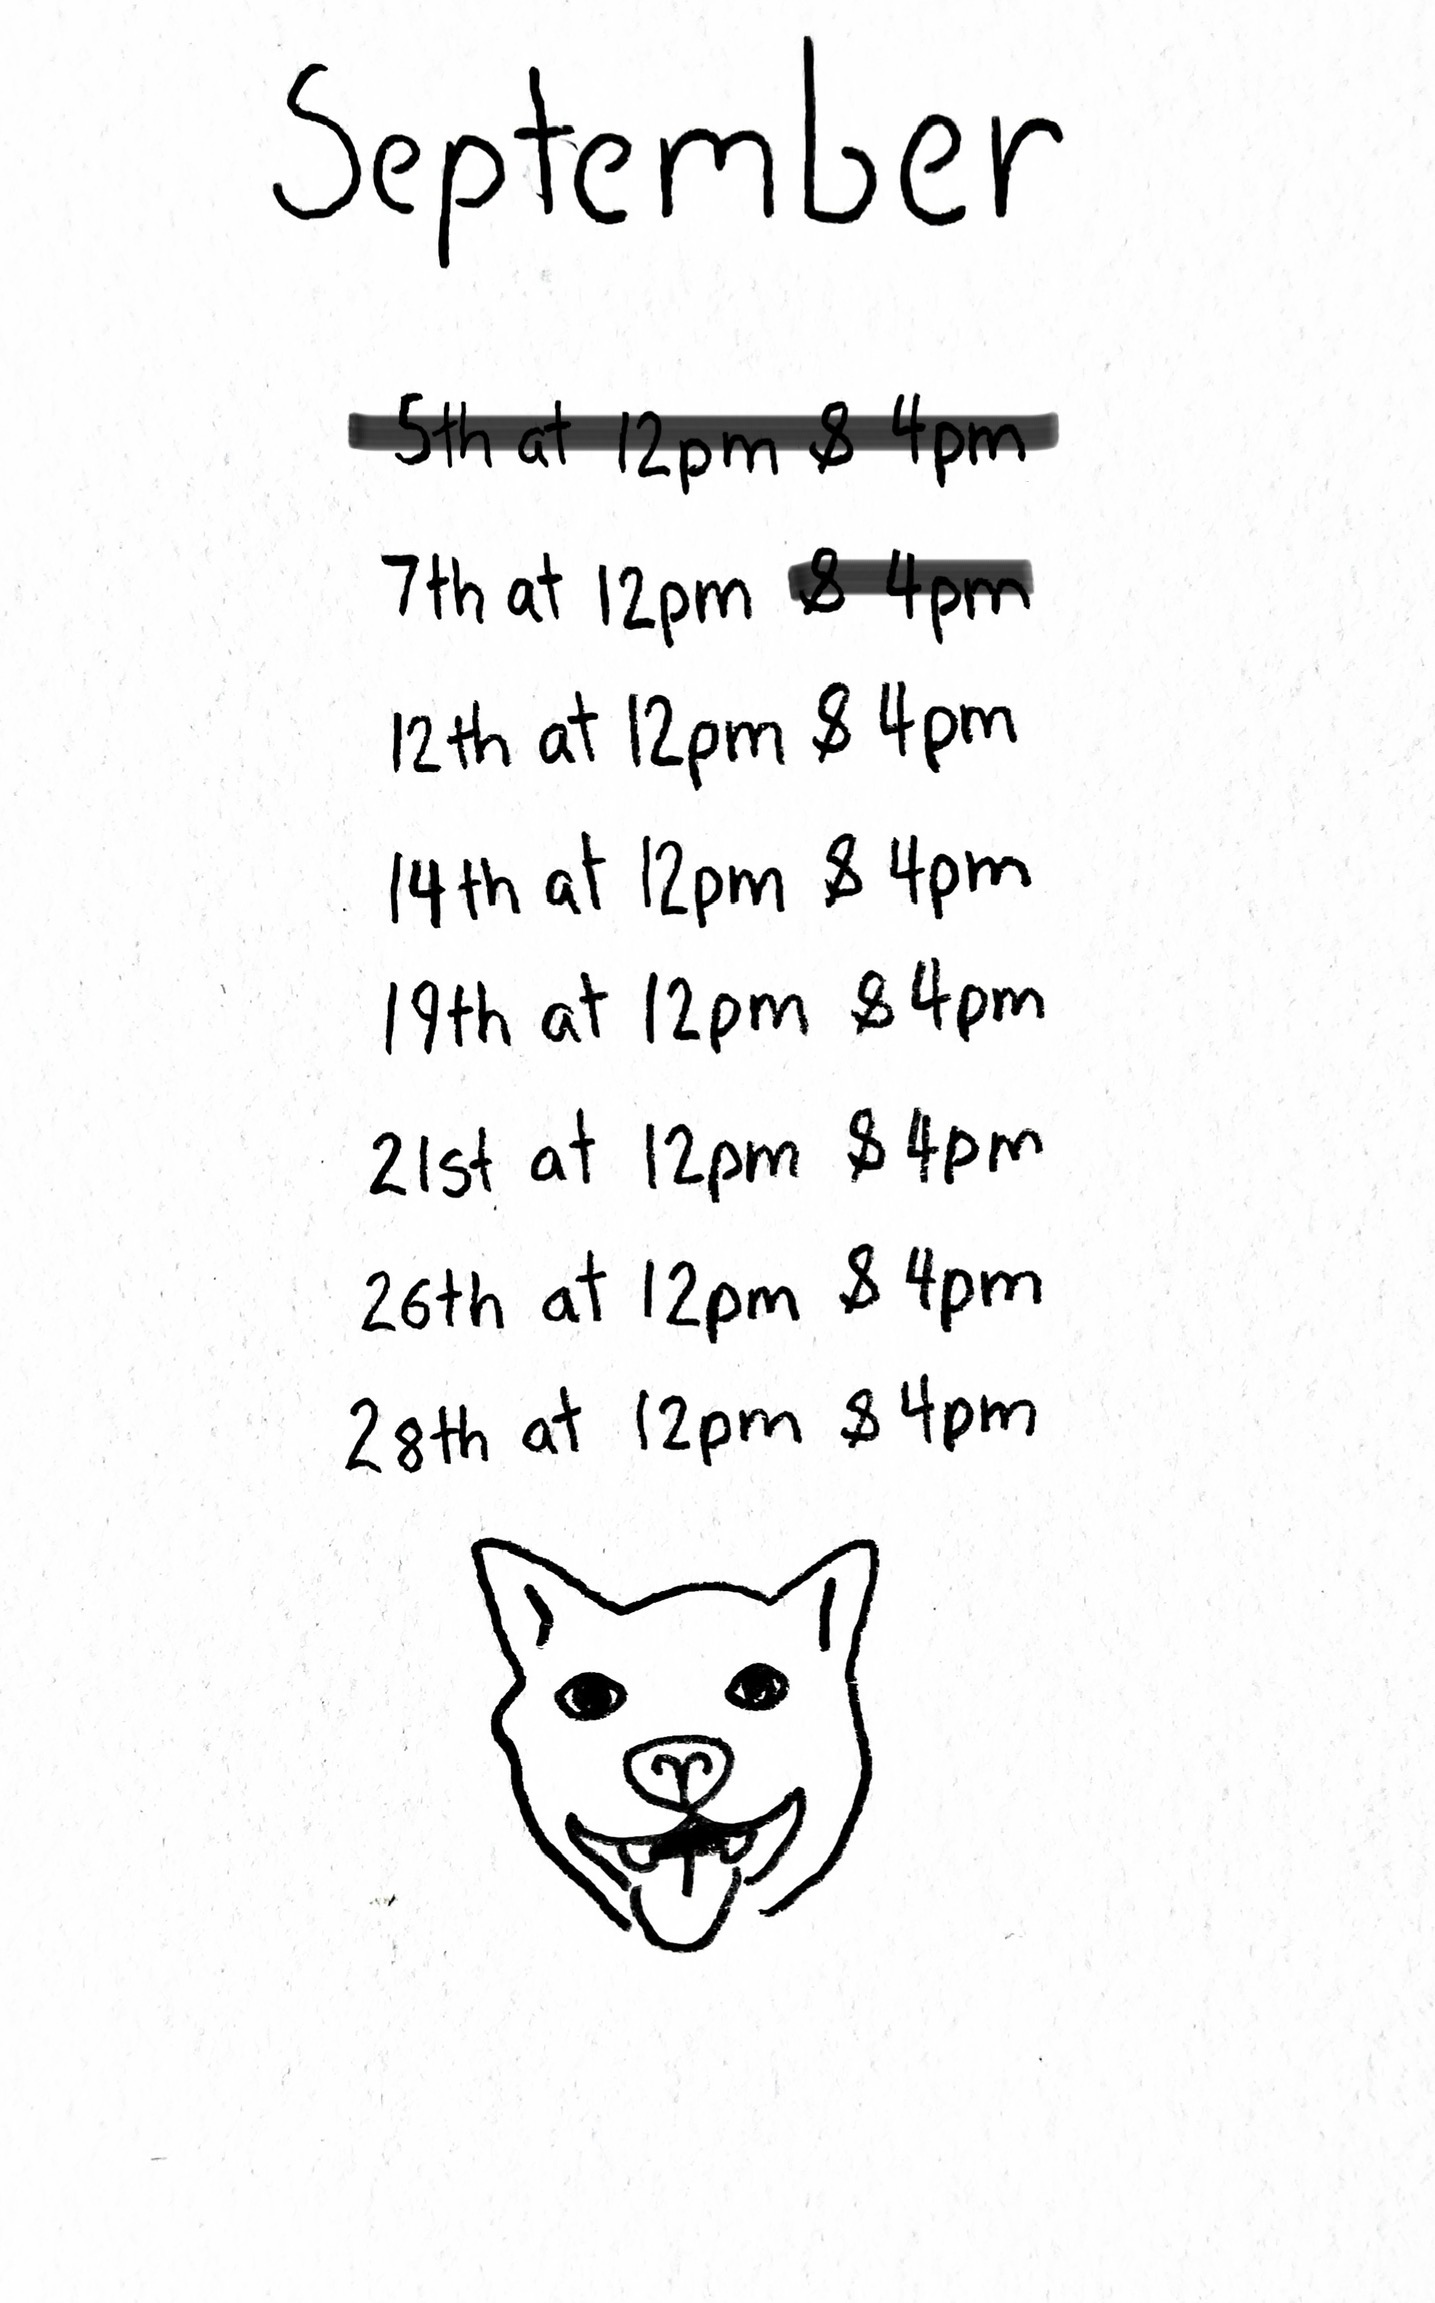 September
5th at 12pm & 4pm
7th at 12pm & 4pm
12th at 12pm & 4pm
14th at 12pm & 4pm
19th at 12pm & 4pm
21st at 12pm & 4pm
26th at 12pm & 4pm
28th at 12pm & 4pm